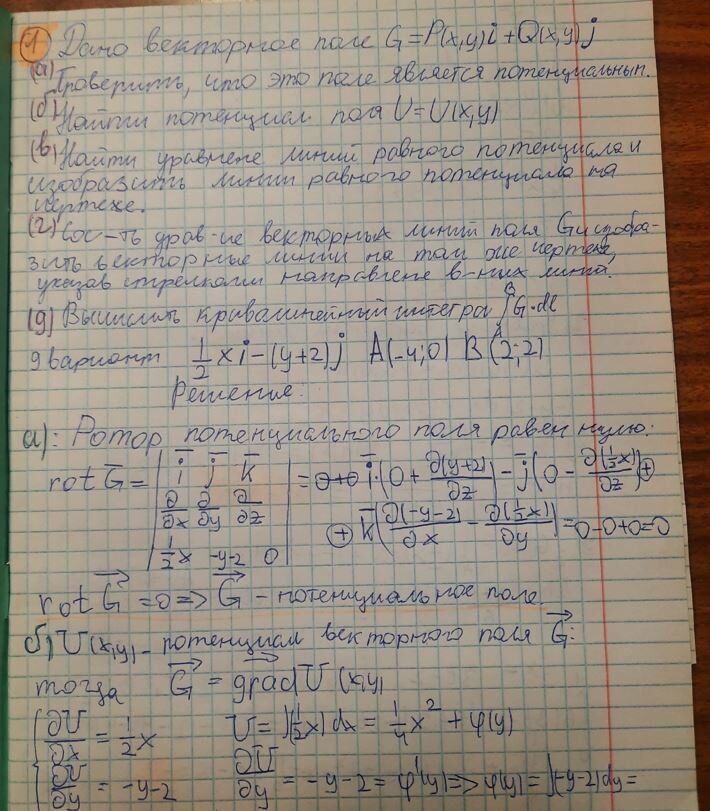 1 Дано векторное поле G=P(x,y)i+Q(x,y)j
(а) Проверить, что это поле является потенциальным.
(б) Найти потенциал поля U=U(x,y)
(в) Найти уравнене линий равного потенциала и
изобразить линии равного потенциала на
чертеже.
(г) Сос-ть урав-ие векторных линий поля G и изобра-
зить векторные линии на том же чертеже,
указав стрелками направлене в-ных линий.
(д) Вычислить криволинейный интеграл ∫ₐᴮ G·dl
9 вариант 1/2 x i-(y+2)j A(-4;0) B(2;2)
Решение:
а): Ротор потенциального поля равен нулю:
rot G = | i j k | = i·(0+∂(y+2)/∂z) - j(0-∂(1/2x)/∂z) ⊕
| ∂/∂x ∂/∂y ∂/∂z | ⊕ k(∂(-y-2)/∂x - ∂(1/2x)/∂y) = 0-0+0=0
| 1/2x -y-2 0 |
rot G = 0 => G - потенциальное поле.
б) U(x,y) - потенциал векторного поля G:
тогда G = grad U (x,y)
{ ∂U/∂x = 1/2x U = ∫(1/2x)dx = 1/4x² + φ(y)
∂U/∂y = -y-2 ∂U/∂y = -y-2 = φ'(y) => φ(y) = ∫(-y-2)dy =